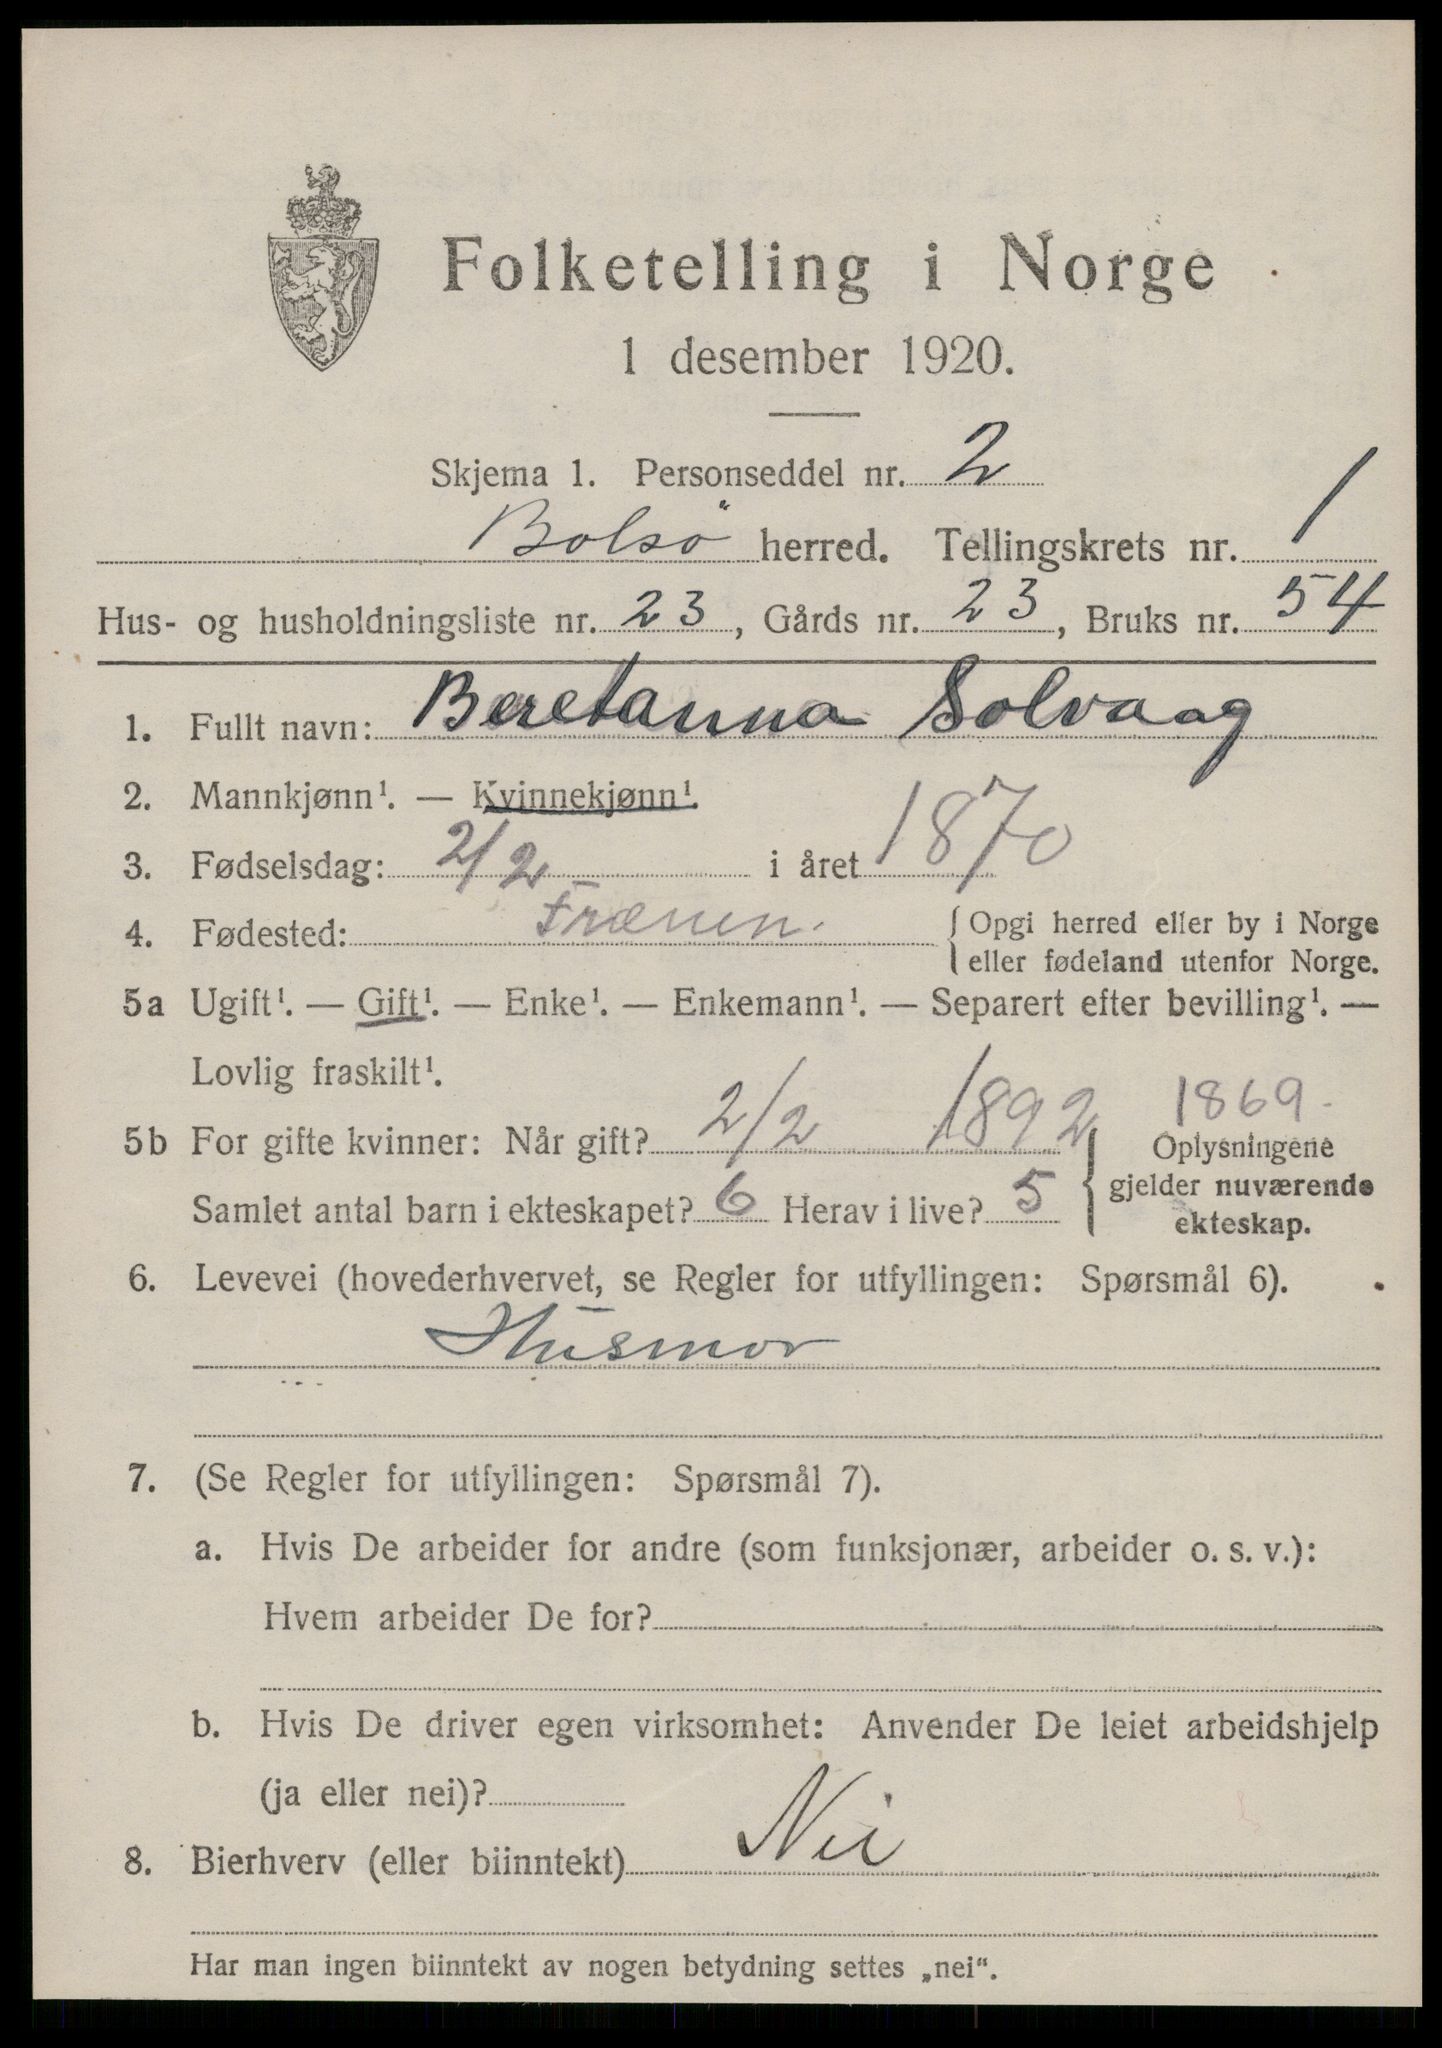 Folketelling i Norge
1 desember 1920.
Skjema 1. Personseddel nr. 2
Bolsö herred. Tellingskrets nr. 1
Hus- og husholdningsliste nr. 23, Gårds nr. 23, Bruks nr. 54
1. Fullt navn: Beretanna Solvaag
2. Mannkjønn¹. — Kvinnekjønn¹.
3. Fødselsdag: 2/2 i året 1870
4. Fødested: Frænen. { Opgi herred eller by i Norge
eller fødeland utenfor Norge.
5a Ugift¹. — Gift¹. — Enke¹. — Enkemann¹. — Separert efter bevilling¹. —
Lovlig fraskilt¹.
1869.
5b For gifte kvinner: Når gift? 2/2 1892 { Oplysningene
gjelder nuværende
Samlet antal barn i ekteskapet? 6 Herav i live? 5
ekteskap.
6. Levevei (hovederhvervet, se Regler for utfyllingen: Spørsmål 6).
Husmor
7. (Se Regler for utfyllingen: Spørsmål 7).
a. Hvis De arbeider for andre (som funksjonær, arbeider o. s. v.):
Hvem arbeider De for?
b. Hvis De driver egen virksomhet: Anvender De leiet arbeidshjelp
(ja eller nei)?
8. Bierhverv (eller biinntekt) Nei
Har man ingen biinntekt av nogen betydning settes „nei“.